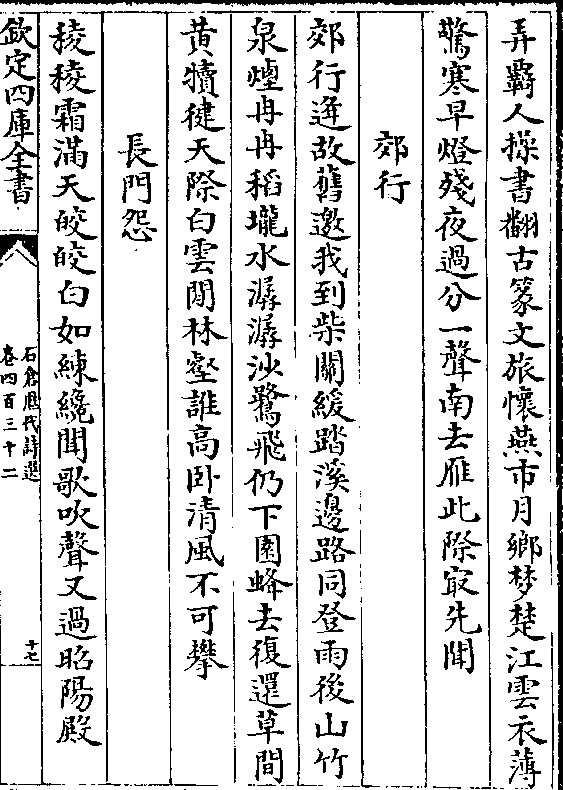 弄霸人操書翻古篆文旅懷燕市月鄉梦楚江雲衣薄
驚寒早燈殘夜過分一聲南去雁此際㝡先聞
郊行
郊行逢故舊邀我到柴關緩踏溪邊路同登雨後山竹
泉煙冉冉稻壠水潺潺沙鷺飛仍下園蜂去復還草間
黄犢健天際白雲閒林壑誰高卧清風不可攀
長門怨
稜稜霜滿天皎皎白如練纔聞歌吹聲又過昭陽殿
欽定四庫全書
石倉歷代詩選
卷四百三十二
十七